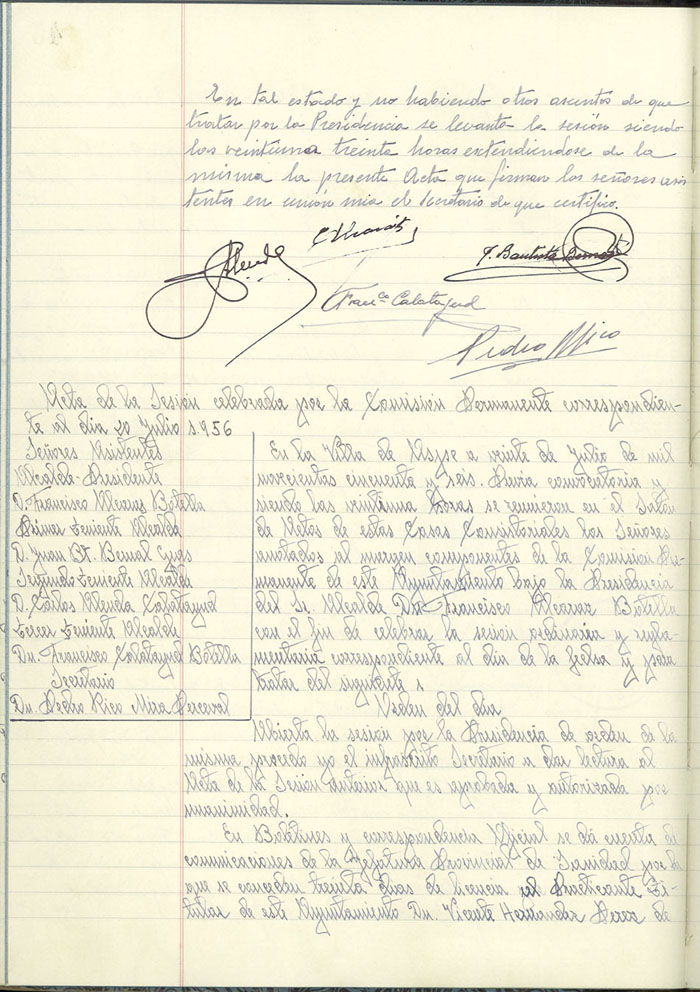 En tal estado y no habiendo otros asuntos de que
tratar por la Presidencia se levanta la sesión siendo
las veintiuna treinta horas extendiendose de la
misma la presente Acta que firman los señores asis
tentes en unión mia el Secretario de que certifico.
J. Bautista Bernal
Franco Calatayud
Pedro Mico
Acta de la Sesión celebrada por la Comisión Permanente correspondien-
te al dia 20 Julio 1.956
Señores Asistentes
Alcalde-Presidente
D. Francisco Alcaraz Botella
Primer Teniente Alcalde
D. Juan Bt. Bernal
Segundo Teniente Alcalde
D. Carlos Calatayud
Tercer Teniente Alcalde
Dn. Francisco Calatayud Botella
Secretario
Dn. Pedro Rico Mira Perceval
En la Villa de Aspe a veinte de Julio de mil
novecientos cincuenta y seis. Previa convocatoria y
siendo las veintiuna horas se reunieron en el Salón
de Actos de estas Casas Consistoriales los Señores
anotados al margen componentes de la Comision Per-
manente de este Ayuntamiento bajo la Presidencia
del Sr. Alcalde Dn. Francisco Alcaraz Botella
con el fin de celebrar la sesión ordinaria y regla-
mentaria correspondiente al dia de la fecha y para
tratar del siguiente :
Orden del dia
Abierta la sesión por la Presidencia de orden de la
misma procedo yo el infrascrito Secretario a dar lectura al
Acta de la Sesión anterior que es aprobada y autorizada por
unanimidad.
En Boletines y correspondencia Oficial se dá cuenta de
comunicaciones de la Jefatura Provincial de Sanidad por la
que se conceden treinta dias de licencia al Practicante Ti-
tular de este Ayuntamiento Dn. Vicente Hernandez Perez de